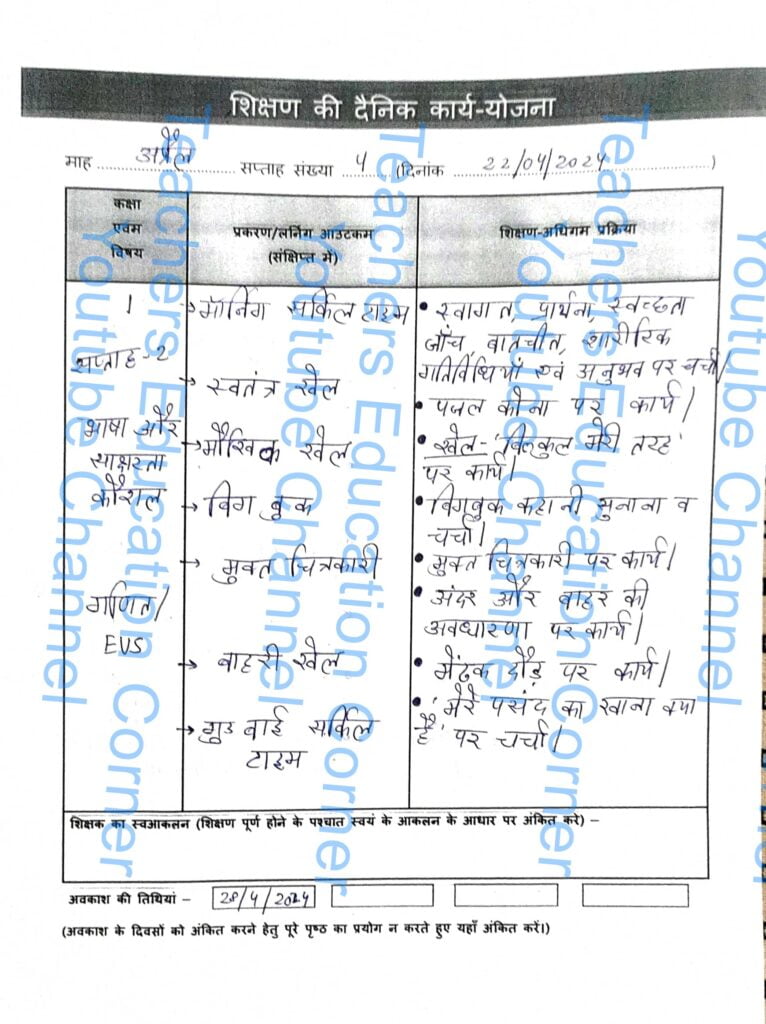 शिक्षण की दैनिक कार्य-योजना
माह अप्रैल सप्ताह संख्या 4 (दिनांक 22/04/2024)
कक्षा
एवम
विषय
प्रकरण/लर्निंग आउटकम
(संक्षिप्त में)
शिक्षण-अधिगम प्रक्रिया
1
सप्ताह-2
भाषा और
साक्षरता
कौशल
गणित/
EVS
→ मॉर्निंग सर्किल टाइम
→ स्वतंत्र खेल
→ मौखिक खेल
→ बिग बुक
→ मुक्त चित्रकारी
→ बाहरी खेल
→ गुड बाई सर्किल
टाइम
• स्वागत, प्रार्थना, स्वच्छता
जाँच, बातचीत, शारीरिक
गतिविधियों एवं अनुभव पर चर्चा।
• पजल कोना पर कार्य।
• खेल-'बिल्कुल मेरी तरह'
पर कार्य।
• बिगबुक कहानी सुनाना व
चर्चा।
• मुक्त चित्रकारी पर कार्य।
• अंदर और बाहर की
अवधारणा पर कार्य।
• मेंढ़क दौड़ पर कार्य।
• 'मेरे पसंद का खाना क्या
है' पर चर्चा।
शिक्षक का स्वआकलन (शिक्षण पूर्ण होने के पश्चात स्वयं के आकलन के आधार पर अंकित करे) –
अवकाश की तिथियां – 28/4/2024
(अवकाश के दिवसों को अंकित करने हेतु पूरे पृष्ठ का प्रयोग न करते हुए यहाँ अंकित करें।)
Teachers Education Corner
Youtube Channel
Teachers Education Corner
Youtube Channel
Teachers Education Corner
Youtube Channel
Youtube Channel